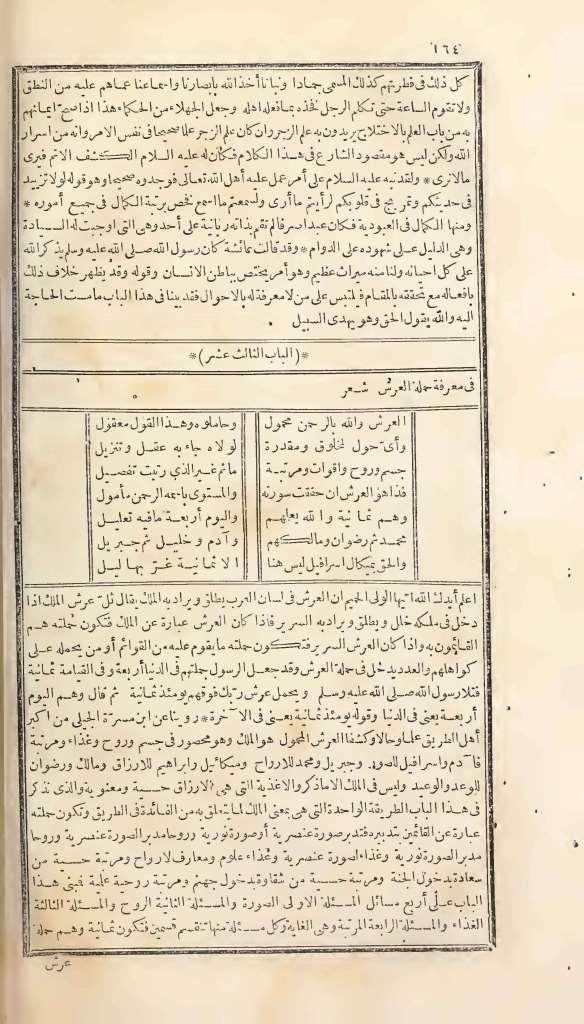 ١٦٤
كل ذلك فى فطرتهم كذلك المسمى جمادا ونباتا أخذ الله بأبصارنا وأسماعنا عماهم عليه من النطق
ولا تقوم الساعة حتى تكلم الرجل فخذه بما فعله أهله وجعل الجهلاء من الحكماء هذا اذا صح ايمانهم
به من باب العلم بالاختلاج يريدون به علم الزجر وان كان علم الزجر علما صحيحا فى نفس الامر وانه من اسرار
الله ولكن ليس هو مقصود الشارع فى هذا الكلام فكان له عليه السلام الكشف الاتم فيرى
مالانرى * ولقد نبه عليه السلام على أمر عمل عليه أهل الله تعالى فوجدوه صحيحا وهو قوله لولا تزييد
فى حديثكم وتمريج فى قلوبكم لرأيتم ما أرى ولسمعتم ما اسمع فخص برتبة الكمال فى جميع أموره *
ومنها الكمال فى العبودية فكان عبدا صرفا لم تقم بذاته ربانية على أحد وهى التى اوجبت له السيادة
وهى الدليل على شهوده على الدوام * وقد قالت عائشة كان رسول الله صلى الله عليه وسلم يذكر الله
على كل احيانه ولنا منه ميراث عظيم وهو أمر يختص بباطن الانسان وقوله وقد يظهر خلاف ذلك
بافعاله مع تحققه بالمقام فيلتبس على من لا معرفة له بالاحوال فقد بينا فى هذا الباب ما مست الحاجة
اليه والله يقول الحق وهو يهدى السبيل
*(الباب الثالث عشر)*
فى معرفة حملة العرش شعر
العرش والله بالرحمن محمول وحاملوه وهذا القول معقول
وأى حول لمخلوق ومقدرة لولاه جاء به عقل وتنزيل
جسم وروح واقوات ومرتبة ما ثم غير الذى رتبت تفصيل
فذا هو العرش ان حققت سورته والمستوى باسمه الرحمن مأمول
وهم ثمانية والله يعلمهم واليوم أربعة ما فيه تعليل
محمد ثم رضوان ومالكهم وآدم وخليل ثم جبريل
والحق بميكال اسرافيل ليس هنا الا ثمانية غر بهاليل
اعلم أيدك الله أيها الولى الحميم ان العرش فى لسان العرب يطلق ويراد به الملك يقال ثل عرش الملك اذا
دخل فى ملكه خلل ويطلق ويراد به السرير فاذا كان العرش عبارة عن الملك فتكون حملته هم
القائمون به واذا كان العرش السرير فتكون حملته ما يقوم عليه من القوائم أو من يحمله على
كواهلهم والعدد يدخل فى حملة العرش وقد جعل الرسول حملتهم فى الدنيا أربعة وفى القيامة ثمانية
فتلا رسول الله صلى الله عليه وسلم ويحمل عرش ربك فوقهم يومئذ ثمانية ثم قال وهم اليوم
أربعة يعنى فى الدنيا وقوله يومئذ ثمانية يعنى فى الآخرة * روينا عن ابن مسرة الجبلى من اكبر
أهل الطريق علما وحالا وكشفا العرش المحمول هو الملك وهو محصور فى جسم وروح وغذاء ومرتبة
فآدم واسرافيل للصور وجبريل ومحمد للارواح وميكائيل وابراهيم للارزاق ومالك ورضوان
للوعد والوعيد وليس فى الملك الا ما ذكر والاغذية التى هى الارزاق حسية ومعنوية والذى نذكر
فى هذا الباب الطريقة الواحدة التى هى بمعنى الملك لما يتعلق به من الفائدة فى الطريق وتكون حملته
عبارة عن القائمين بتدبيره فتدبر صورة عنصرية أو صورة نورية وروحا مدبر الصورة عنصرية وروحا
مدبر الصورة نورية وغذاء لصورة عنصرية وغذاء علوم ومعارف لارواح ومرتبة حسية من
سعادة بدخول الجنة ومرتبة حسية من شقاوة بدخول جهنم ومرتبة روحية علمية فبنى هذا
الباب على أربع مسائل المسئلة الاولى الصورة والمسئلة الثانية الروح والمسئلة الثالثة
الغذاء والمسئلة الرابعة المرتبة وهى الغاية وكل مسئلة منها تنقسم قسمين فتكون ثمانية وهم حملة
عرش